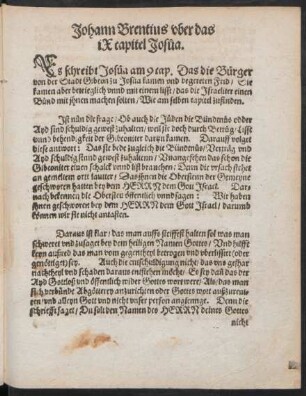 Johann Brentius vber das
IX capitel Josüa.
Es schreibt Josüa am 9 cap. Das die Bürger
von der Stadt Gibeon zu Josüa kamen vnd begereten Frid/ Sie
kamen aber betrieglich vnnd mit einem lüst/ das die Israeliter einen
Bünd mit jhnen machen solten/ Wie am selben capitel zufinden.
Ist nün die frage/ Ob auch die Jüden die Bündenüs oder
Ayd sind schüldig gewest zuhalten/ weil sie doch durch Betrüg/ Lüst
vnd behendigkeit der Gibeoniter darzu kamen. Darauff volget
diese antwort: Das sie bede zugleich die Bündnüs/ Vertrüg vnd
Ayd schüldig sind gewest zuhalten/ Vnangesehen das schon die
Gibeoniter einen schalck vnnd list brauchen/ Denn die vrsach stehet
an gemeltem ort lautter/ Das jhnen die Obersten der Gemeyne
geschworen hatten bey dem HERRN dem Gott Israel. Dar-
nach bekennen die Obersten öffentlich vnnd sagen: Wir haben
jhnen geschworen bey dem HERRN dem Gott Israel/ darumb
können wir sie nicht antasten.
Daraus ist klar/ das man auffs steiffest halten sol was man
schweret vnd zusaget bey dem heiligen Namen Gottes/ Vnd hilfft
kein außred das man vom gegentheyl betrogen vnd vberlistet (oder
genöttiget) sey. Auch die entschüldigung nicht/ das vns gefahr
nachtheyl vnd schaden daraus entstehen möcht/ Es sey dañ das der
Ayd Gottloß vnd öffentlich wider Gottes wort were/ Als/ das man
sich verbünde Abgötterey anzurichten oder Gottes wort außzureut-
ten/ vnd allein Gott vnd nicht vnser person angienge. Denn die
schrifft saget/ Du solt den Namen des HERRN deines Gottes
nicht